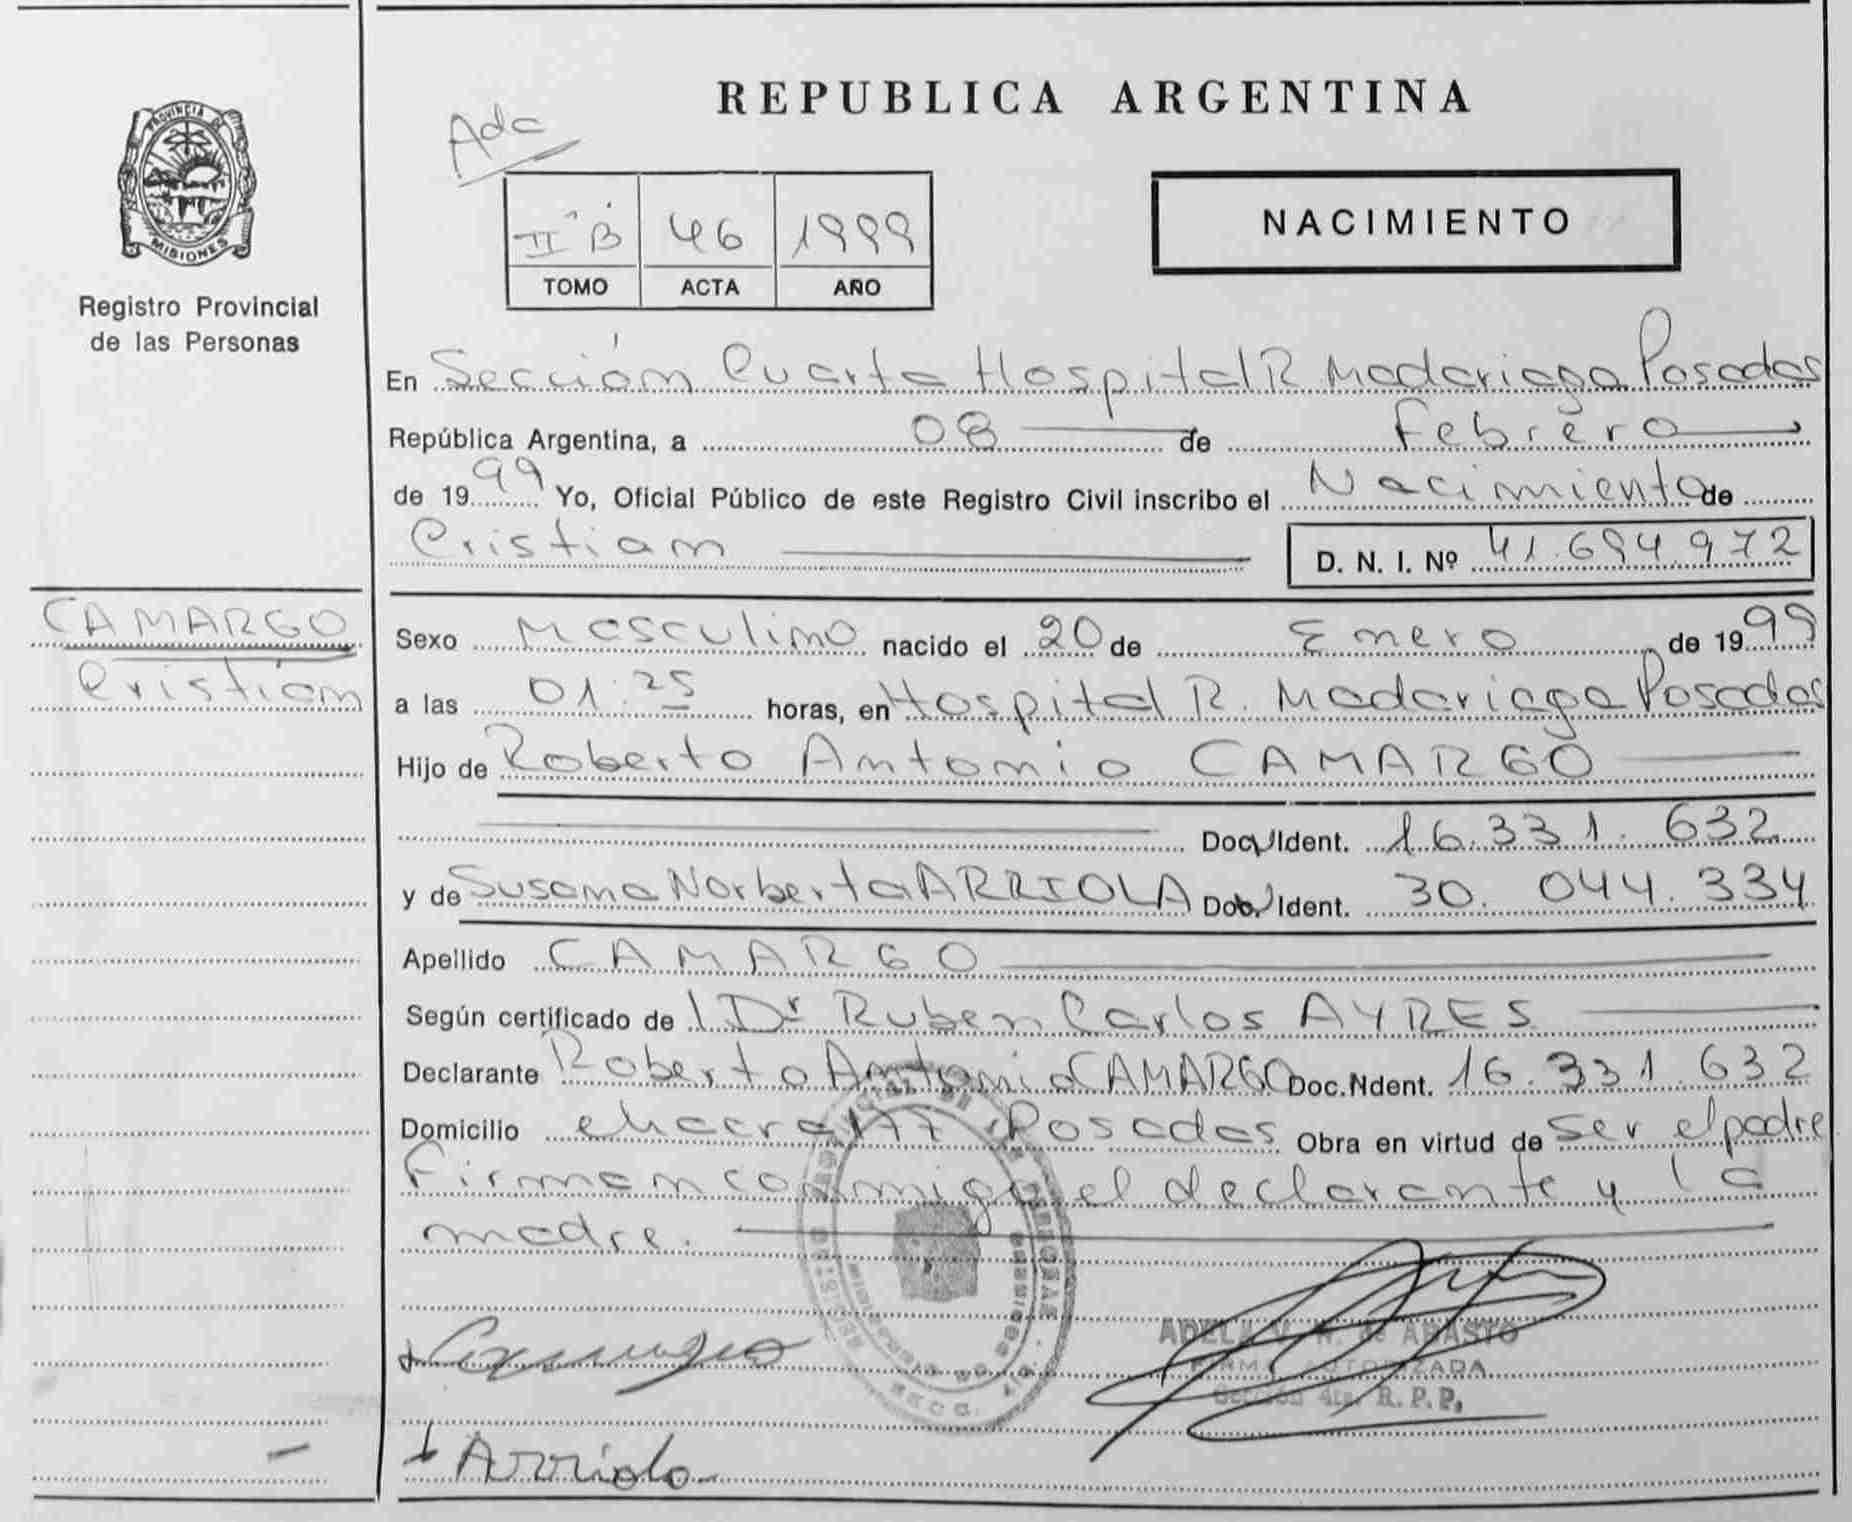 PROVINCIA DE
MISIONES
Registro Provincial
de las Personas
CAMARGO
Cristian
REPUBLICA ARGENTINA
Ada
II B 46 1999
TOMO ACTA AÑO
NACIMIENTO
En Sección Cuarta Hospital R Madariaga Posadas
República Argentina, a 08 de Febrero
de 1999 Yo, Oficial Público de este Registro Civil inscribo el Nacimiento de
Cristian D. N. I. Nº 41.694.972
Sexo Masculino nacido el 20 de Enero de 1999
a las 01:25 horas, en Hospital R. Madariaga Posadas
Hijo de Roberto Antonio CAMARGO
Doc. Ident. 16.331.632
y de Susana Norberta ARRIOLA Doc. Ident. 30.044.334
Apellido CAMARGO
Según certificado de l Dr Ruben Carlos AYRES
Declarante Roberto Antonio CAMARGO Doc. Ident. 16.331.632
Domicilio chacra 177 Posadas Obra en virtud de ser el padre
Firman conmigo el declarante y la
madre.
ADELA V. N. de ABASTO
FIRMA AUTORIZADA
Sección 4ta. R. P. P.
Camargo
Arriola